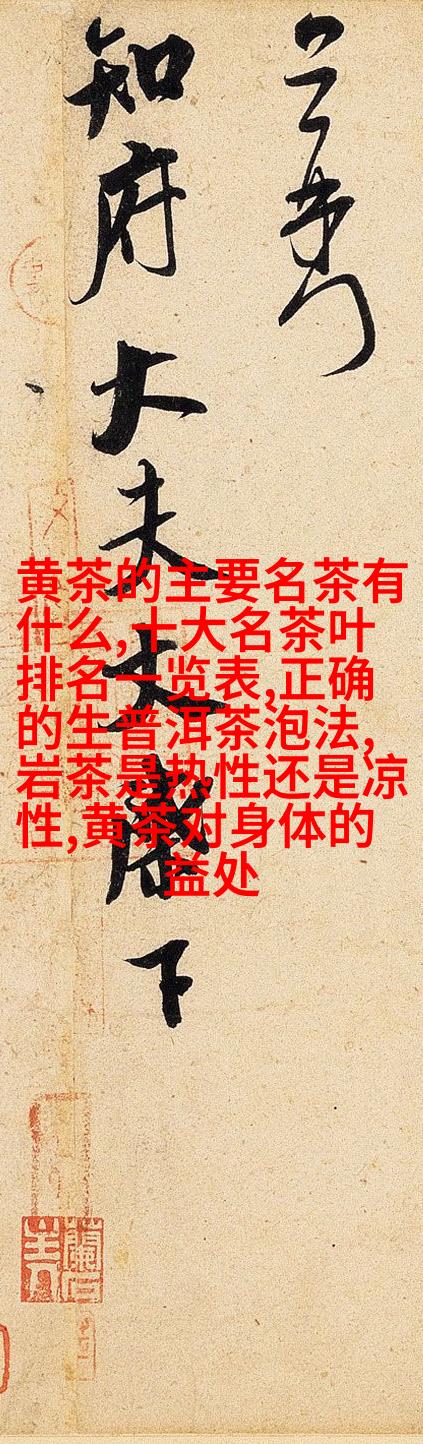 知府大夫丈麾下
黄茶的主要名茶有
什么,十大名茶叶
排名一览表,正确
的生普洱茶泡法,
岩茶是热性还是凉
性,黄茶对身体的
益处